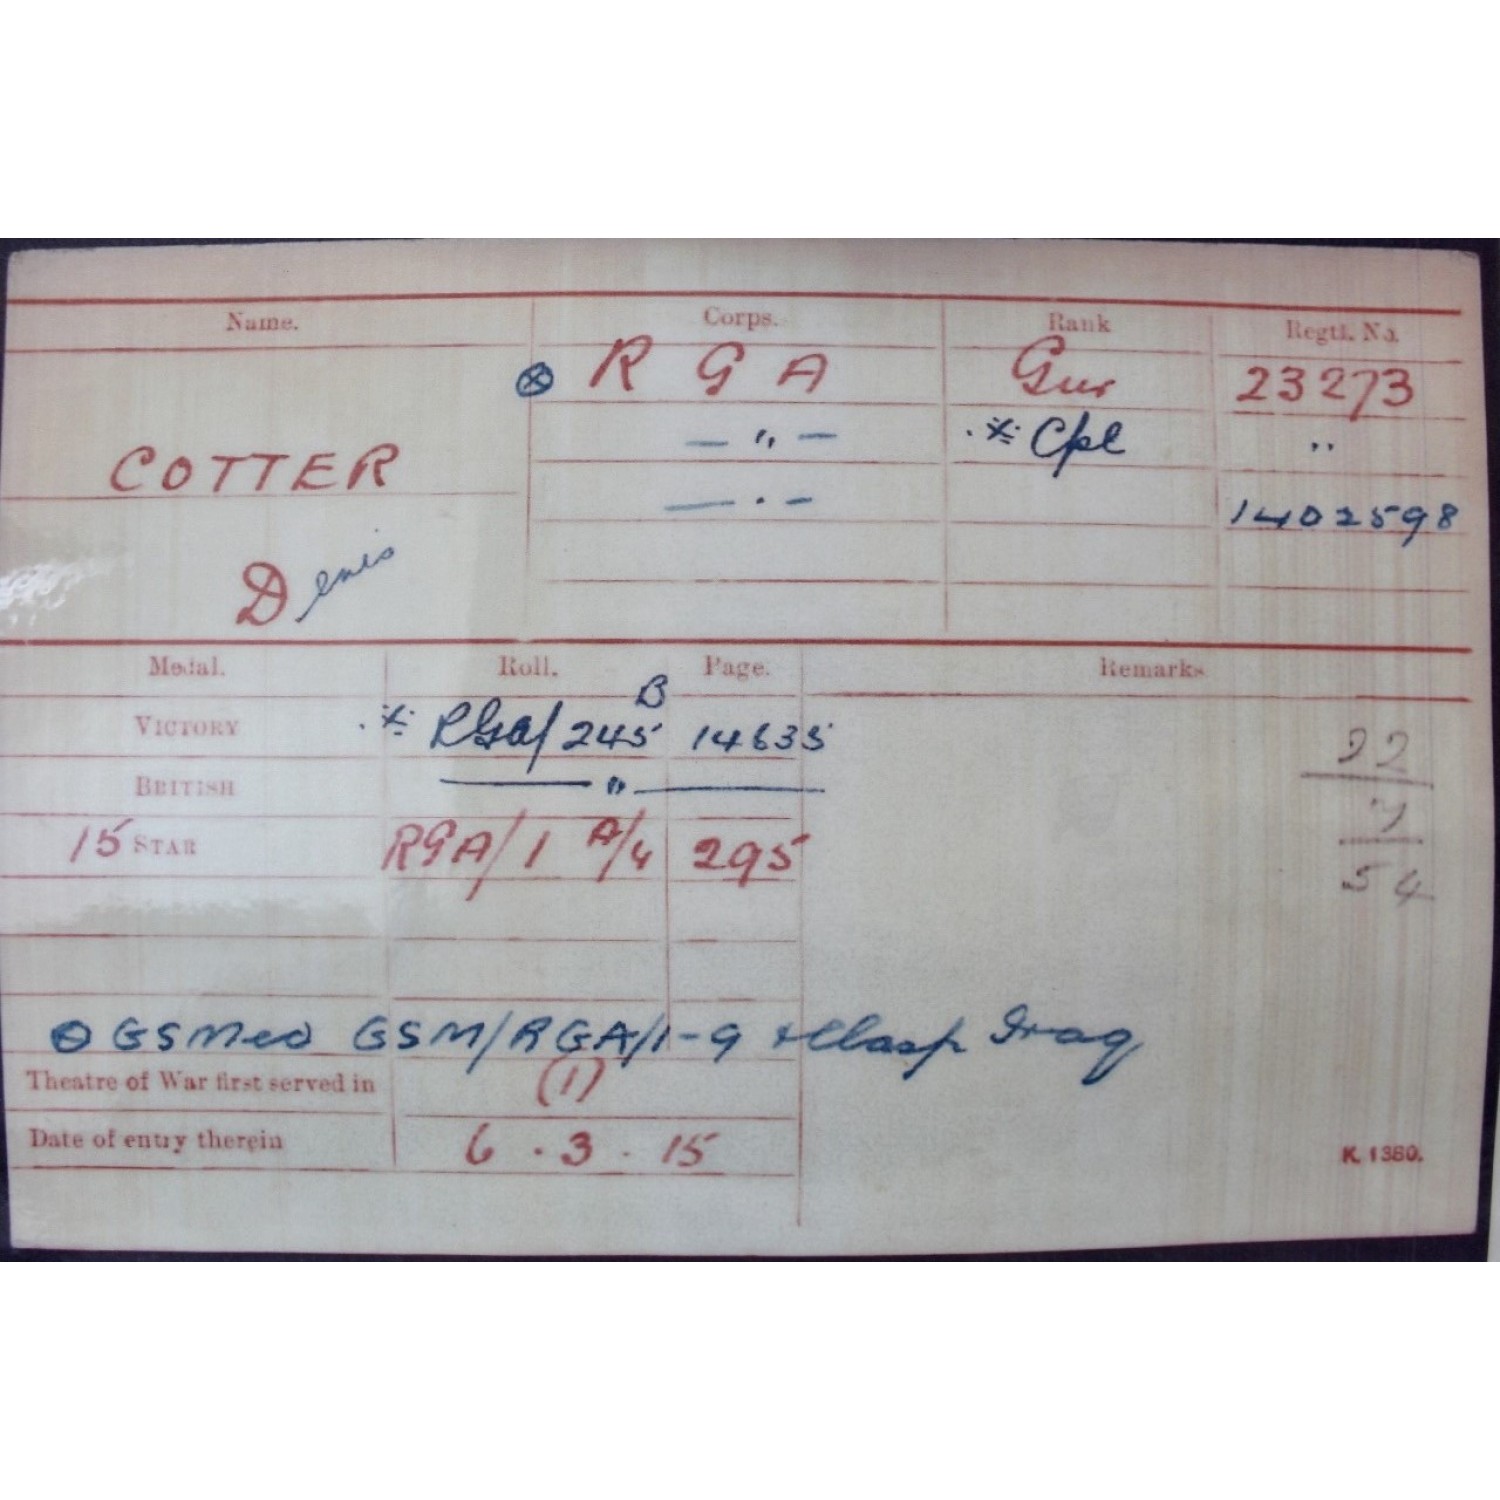 Name. Corps. Rank Regtl. No.
⊗ R G A Gnr 23273
— " — ※ Cpl "
COTTER
— " — 1402598
Denis
Medal. Roll. Page. Remarks
VICTORY ※ RGA/245 B 14635
22
BRITISH — " —
7
15 STAR RGA/1 A/4 295
54
⊗ GSMed GSM/RGA/1-9 + Clasp Iraq
Theatre of War first served in (1)
Date of entry therein 6.3.15
K. 1380.